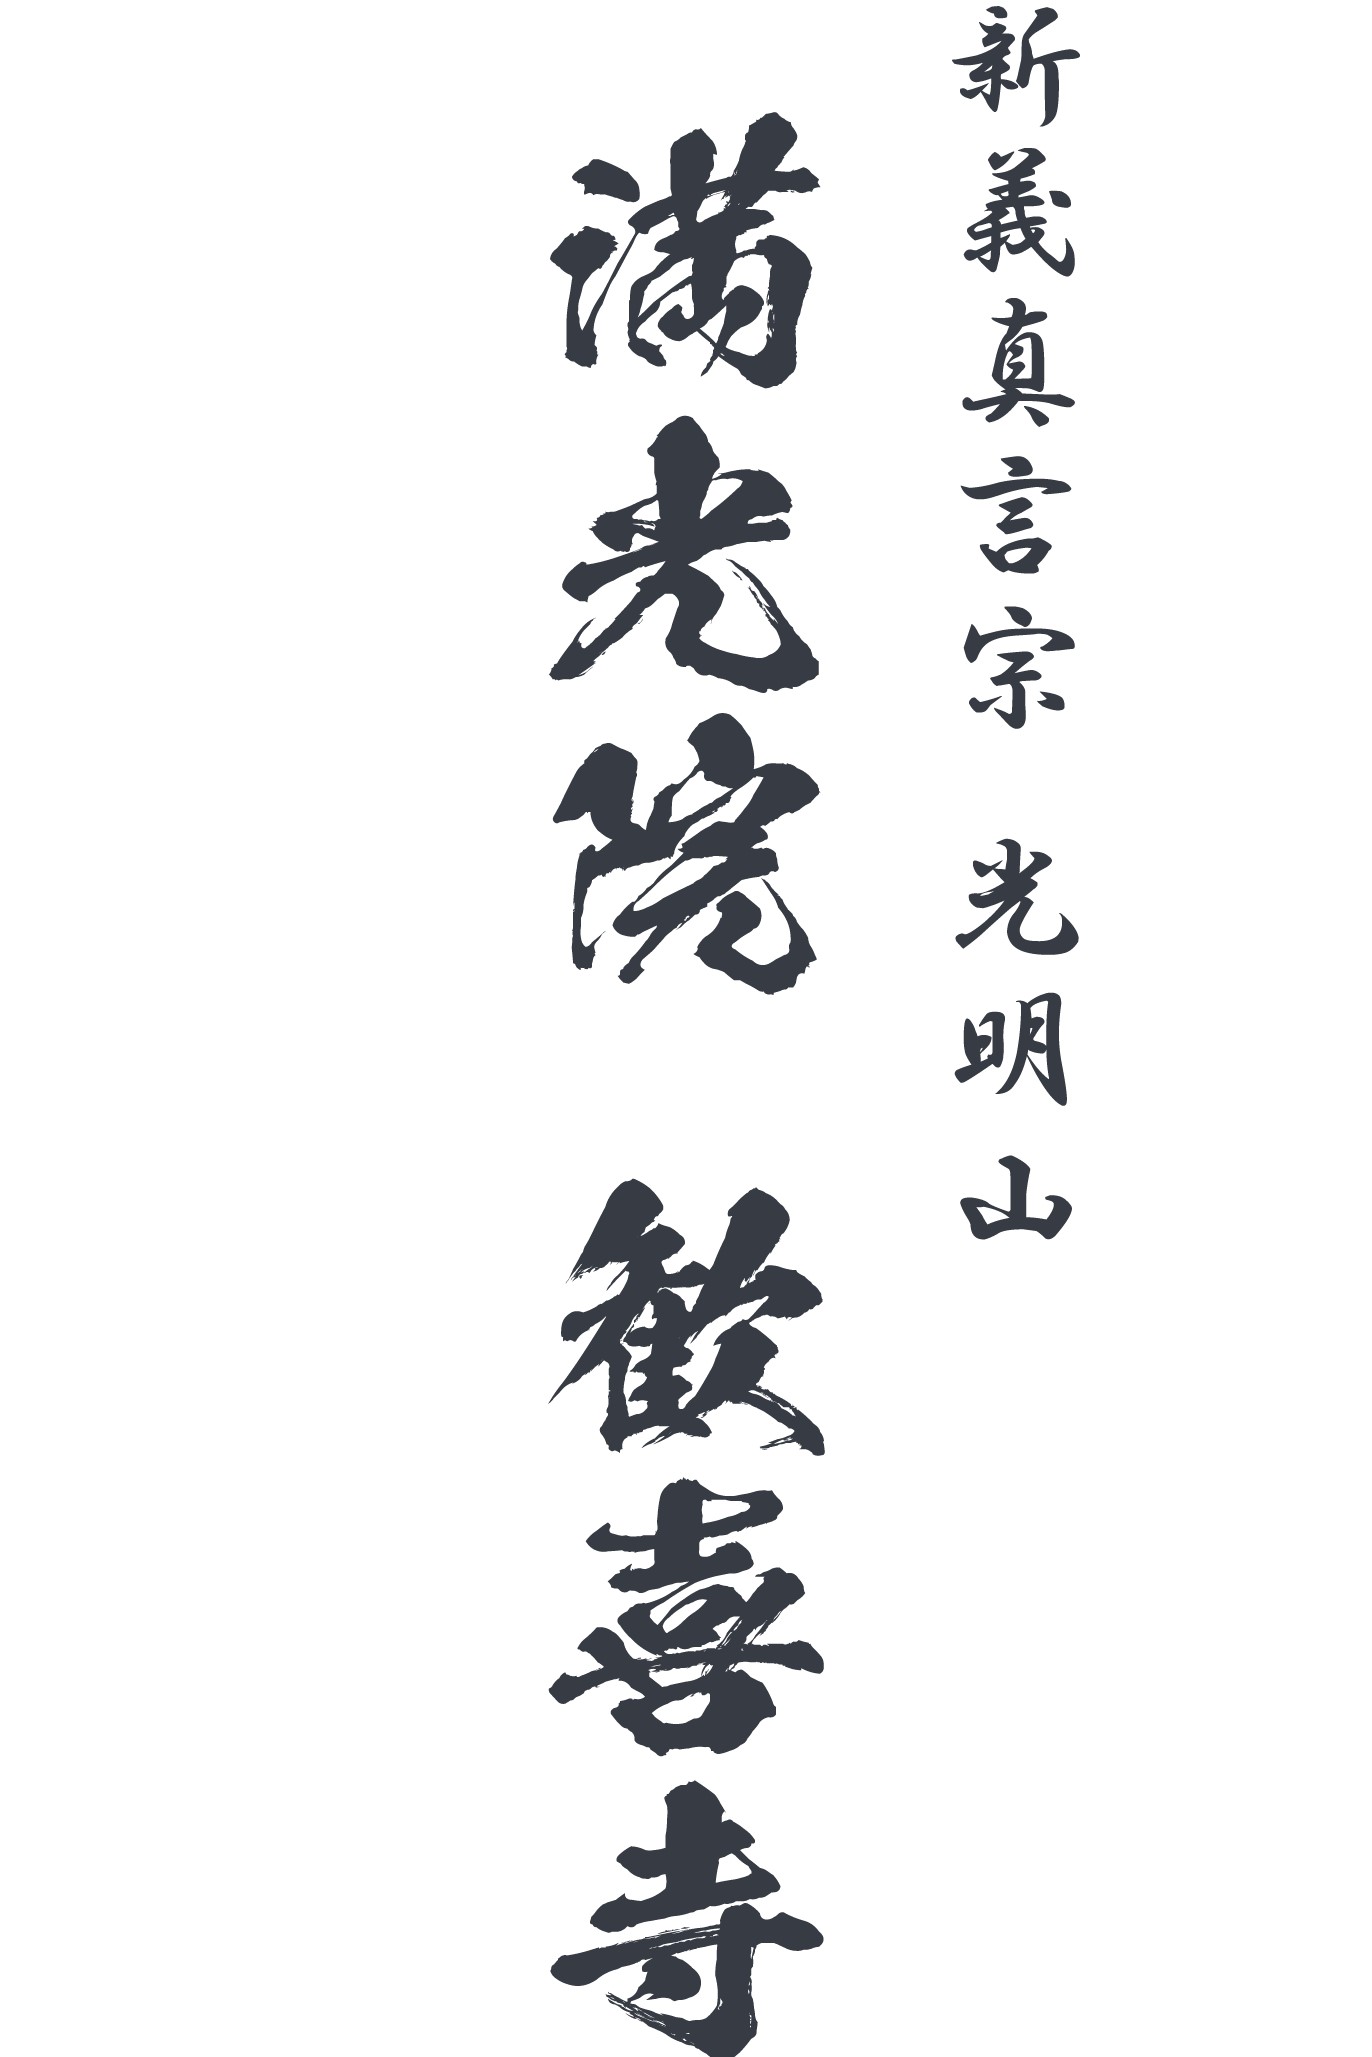 新義真言宗 光明山
満光院 歓喜寺